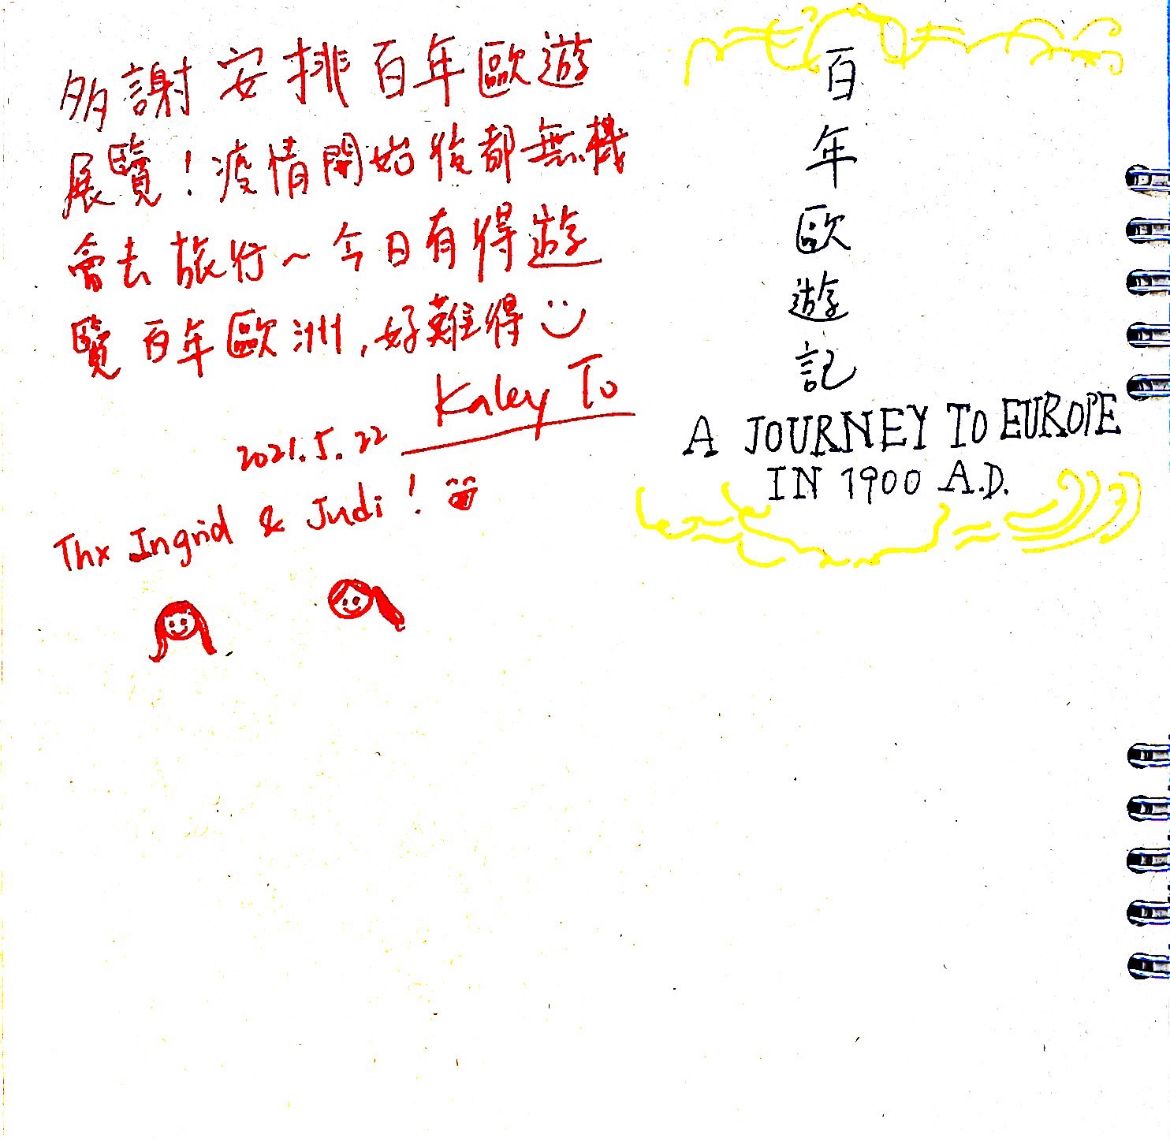 多謝安排百年歐遊
展覽！疫情開始後都無機
會去旅行～今日有得遊
覽百年歐洲，好難得
Kaley To
2021.5.22
Thx Ingrid & Judi !
百年歐遊記
A JOURNEY TO EUROPE
IN 1900 A.D.